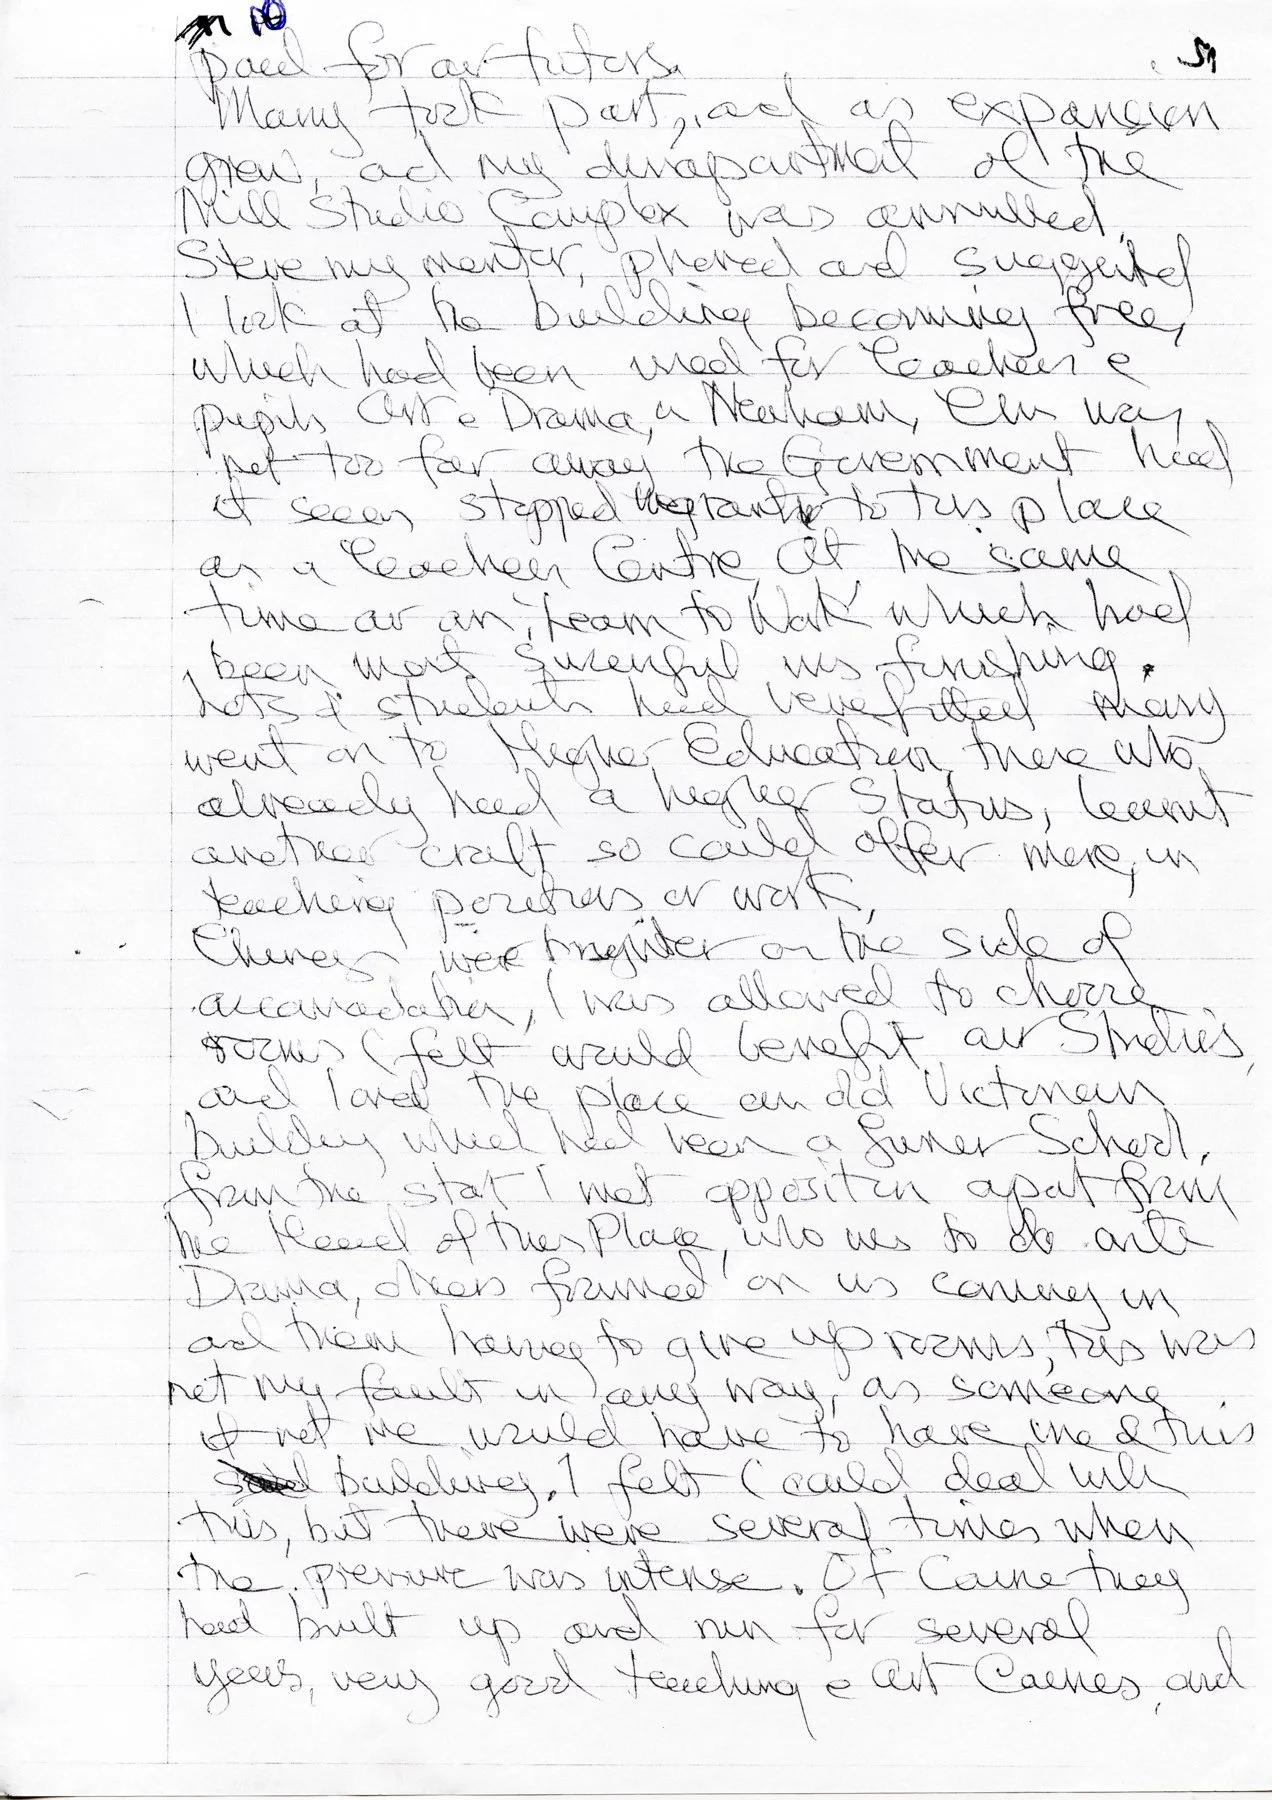 10
51
paid for our tutors.
Many took part, and as expansion
grew, and my disappointment of the
Mill Studio Complex was annulled,
Steve my mentor, phoned and suggested
I look at the building becoming free,
which had been used for Teachers &
pupils Art & Drama, in Newham, this was
not too far away the Government had
it seems stopped grants to this place
as a Teachers Centre, At the same
time as our 'Learn to Work' which had
been most successful was finishing.
Lots of students had benefitted many
went on to Higher Education, those who
already had a higher Status, learnt
another craft so could offer more, in
teaching positions or work,
Things were brighter on the side of
accomodation, I was allowed to choose
rooms I felt would benefit our Studies,
and loved the place an old Victorian
building which had been a former School.
from the start I met opposition apart from
the Head of this Place, who was to do with
Drama, others frowned on us coming in
and them having to give up rooms, this was
not my fault in any way, as someone
if not me would have to have used this
building. I felt I could deal with
this, but there were several times when
the pressure was intense. Of Course they
had built up and run for several
years, very good teaching & Art Courses, and